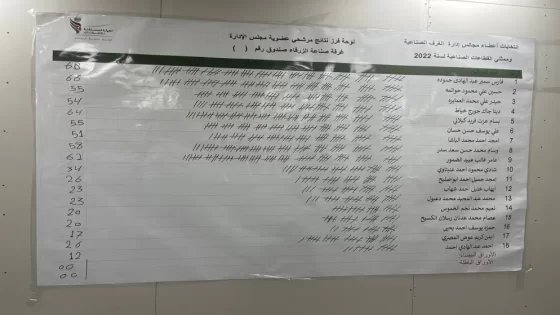 انتخابات أعضاء مجالس إدارة الغرف الصناعية
وممثلي القطاعات الصناعية لسنة 2022
لوحة فرز نتائج مرشحي عضوية مجلس الإدارة
غرفة صناعة الزرقاء صندوق رقم ( )
1 فارس سمير عبد الهادي حموده 68
2 حسين علي محمود 66
3 حيدر علي محمد العمايره 55
4 دينا خالد جورج خياط 54
5 بسام عزت فريد كيلاني 64
6 علي يوسف حسن حسان 55
7 احمد احمد محمد الباشا 51
8 وسام محمد حسن سعد سمر 58
9 عامر غالب عبيد الغمور 62
10 شادي محمود احمد 34
11 امجد جميل احمد ابو صليح 26
12 ايهاب عدلي احمد شهاب 23
13 محمد عبد المجيد محمد دغول 23
14 نعيم محمد نجم الخموس 20
15 عصام محمد عدنان رسلان الكسيح 20
16 حمزه يوسف احمد يحيى 17
17 ايمن فريد عوض المصري 26
18 احمد عبد الهادي احمد 12
الأوراق البيضاء 00
الأوراق الباطلة 00